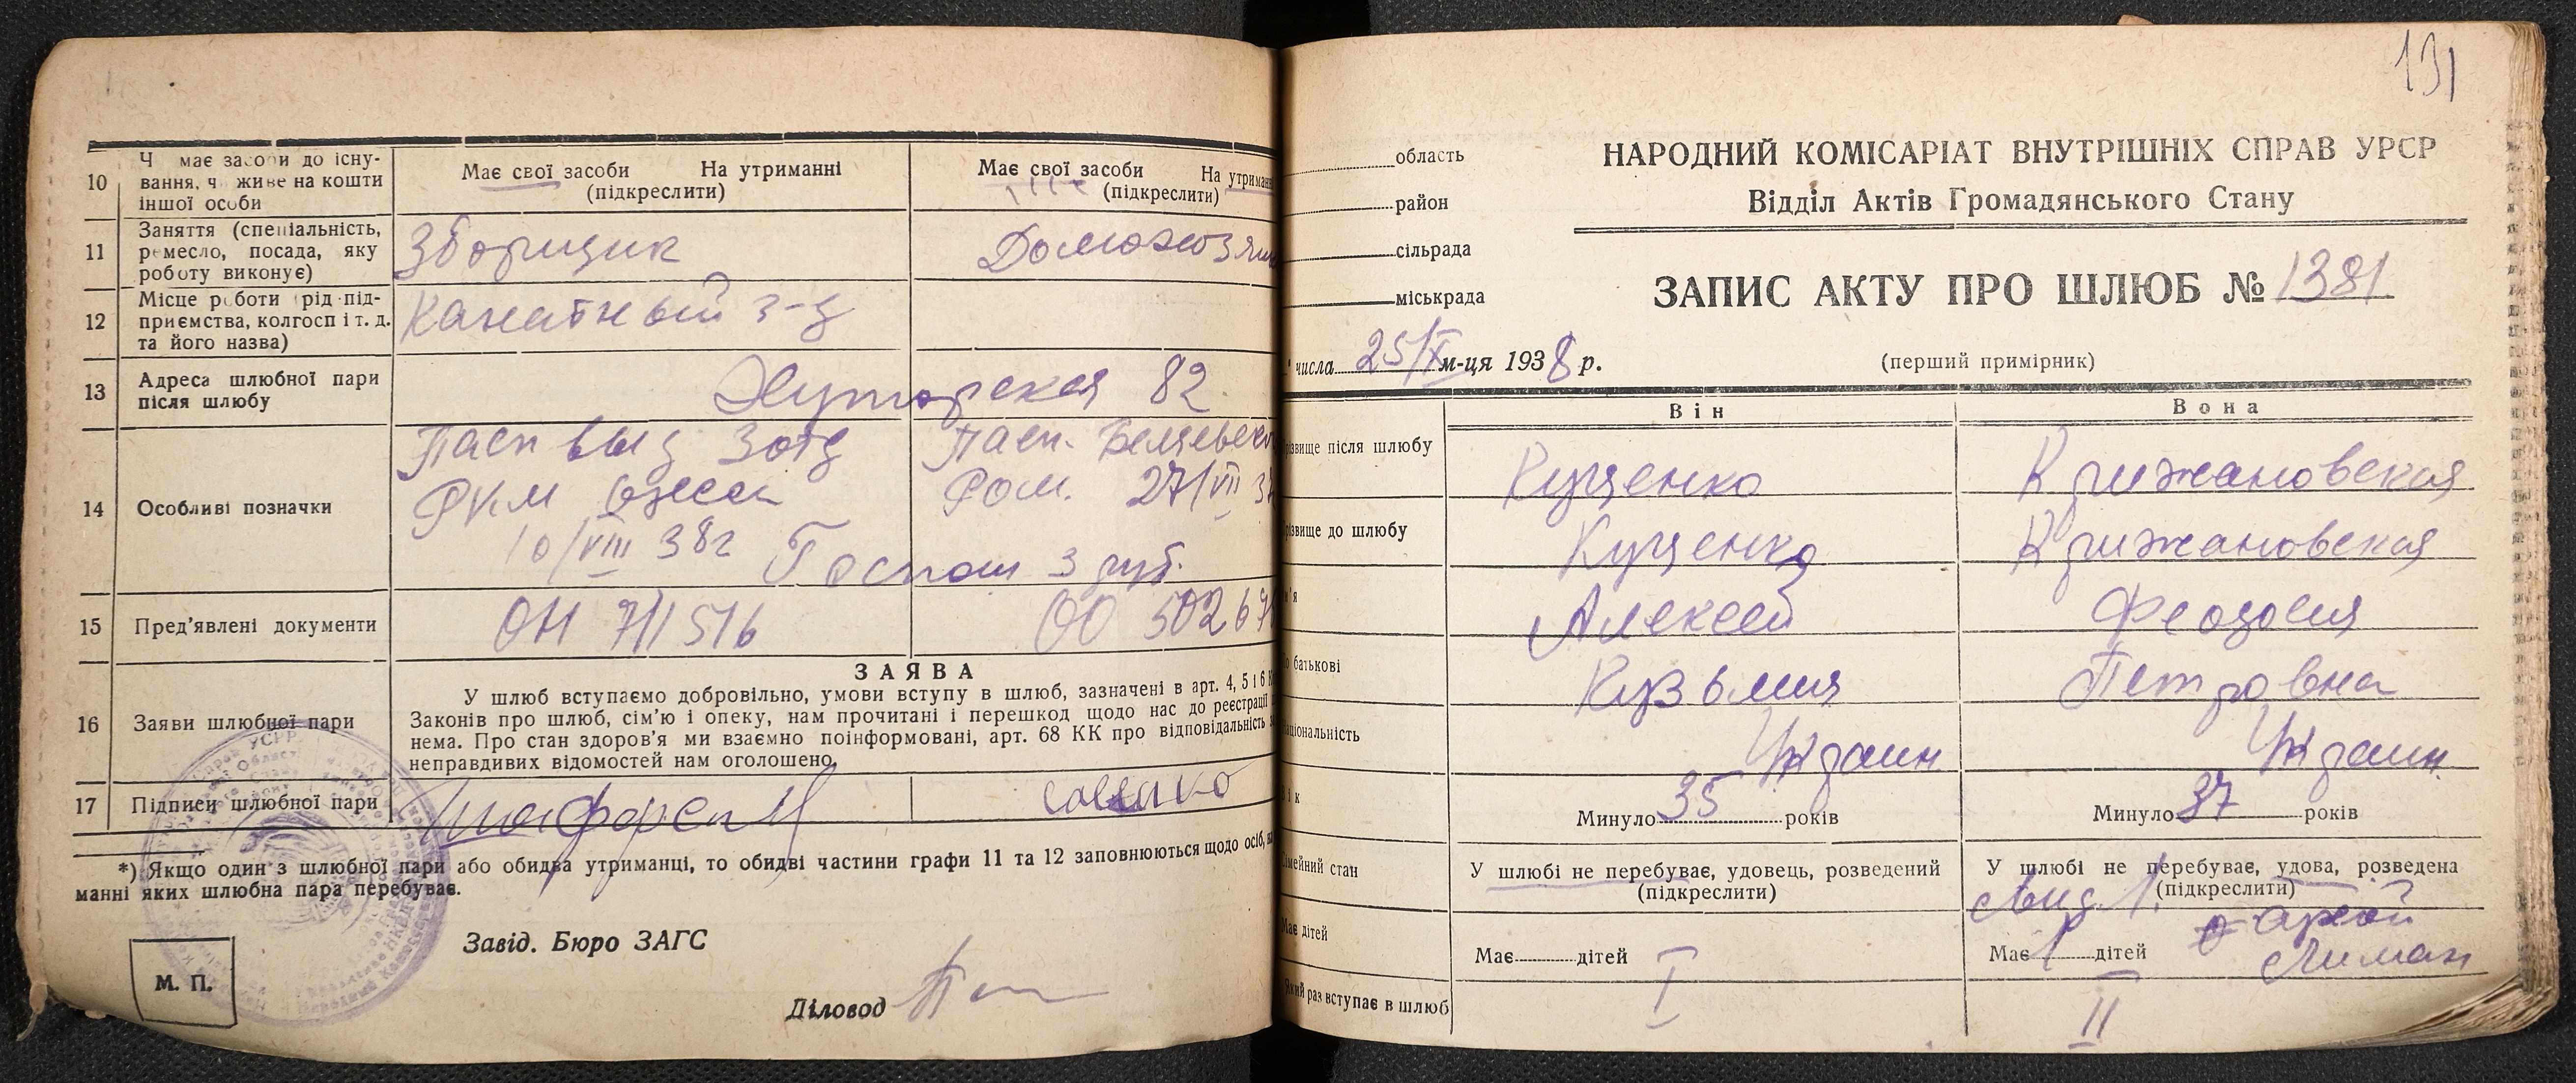 10
Ч має засоби до існу-
вання, ч живе на кошти
іншої особи
Має свої засоби На утриманні
(підкреслити)
Має свої засоби На утриман
(підкреслити)
11
Заняття (спеціальність,
ремесло, посада, яку
роботу виконує)
Зборщик
Домохозяй
12
Місце роботи рід під-
приємства, колгосп і т. д.
та його назва)
Канатный з-д
13
Адреса шлюбної пари
після шлюбу
Хуторская 82
14
Особливі позначки
Пасп выд 3 отд
РКМ Одесса
10/VIII 38г
Пасп.
РОМ. 27/VII 3
Госпош 3 руб.
15
Пред'явлені документи
ОН 711516
ОО 50267
16
Заяви шлюбної пари
ЗАЯВА
У шлюб вступаємо добровільно, умови вступу в шлюб, зазначені в арт. 4, 5 і 6 К
Законів про шлюб, сім'ю і опеку, нам прочитані і перешкод щодо нас до реєстрації
нема. Про стан здоров'я ми взаємно поінформовані, арт. 68 КК про відповідальність
неправдивих відомостей нам оголошено.
17
Підписи шлюбної пари
*) Якщо один з шлюбної пари або обидва утриманці, то обидві частини графи 11 та 12 заповнюються щодо осіб, на
манні яких шлюбна пара перебуває.
М. П.
Завід. Бюро ЗАГС
Діловод
131
область
район
сільрада
міськрада
НАРОДНИЙ КОМІСАРІАТ ВНУТРІШНІХ СПРАВ УРСР
Відділ Актів Громадянського Стану
ЗАПИС АКТУ ПРО ШЛЮБ № 1381
(перший примірник)
числа 25/X м-ця 1938 р.
Він
Вона
різвище після шлюбу
Куценко
Крижановская
різвище до шлюбу
Куценко
Крижановская
м'я
Алексей
Феодосия
о батькові
Кузьмич
Петровна
аціональність
Украин.
Украин.
Вік
Минуло 35 років
Минуло 37 років
імейний стан
У шлюбі не перебуває, удовець, розведений
(підкреслити)
У шлюбі не перебуває, удова, розведена
(підкреслити)
Має дітей
Має дітей
Має 1 дітей
Лиман
Який раз вступає в шлюб
I
II